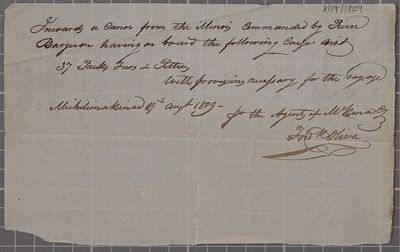 8/19/1809
Inwards a Canoe from the Illinois Commanded by Pierre
Bargeron having on board the following Cargo Viz.t
37 Packs Furs & Peltries
With provisions necessary for the Voyage
Michilimakinac 19th augt 1809 –
for the Agents of
Oliva